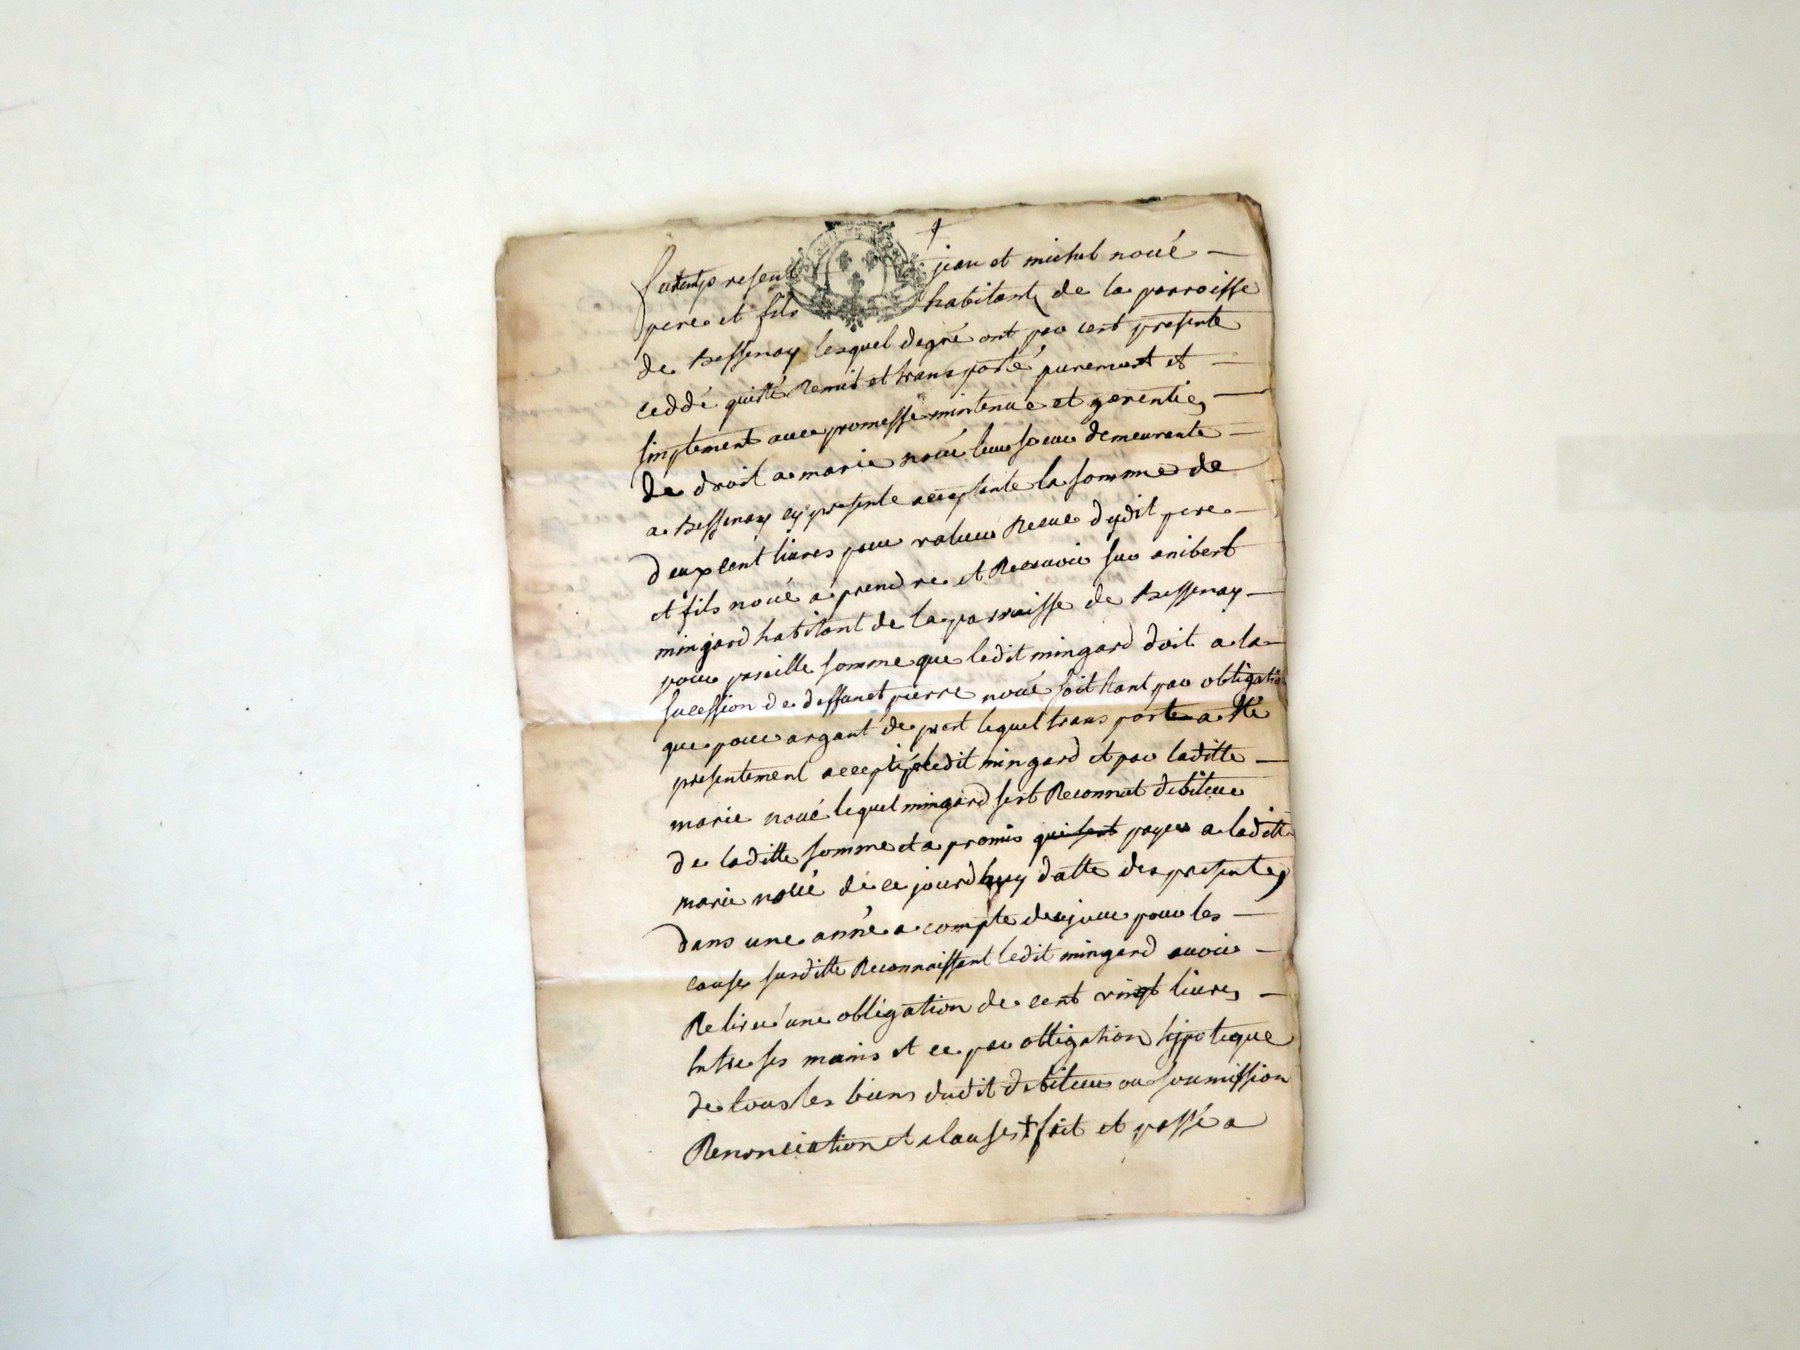 furent presents jean et michel noué
pere et fils habitants de la parroisse
de Bessenay lesquel degré ont par cest presente
ceddé quitté Remis et transporté purement et
simplement avec promesse mintenue et garentie
de droit a marie noué leur soeur demeurente
a Bessenay cy presente acceptante la somme de
deux cent livres pour valeur Receue dydit pere
et fils noué a prendre et Recevoir sur anibert
mingard habitant de la parroisse de Bessenay
pour pareille somme que ledit mingard doit a la
sucession de deffunct pierre noué soit tant par obligation
que pour argant de prest lequel transport a ete
presentement accepté ledit mingard et par laditte
marie noué lequel mingard sest Reconnut debiteur
de laditte somme et a promis payer a laditte
marie noué de ce jourdhuy datte des presentes
dans une anné a compte de ce jour pour les
causes susditte Reconnaissant ledit mingard avoir
Retiré une obligation de cent vingt livres
Entre ses mains et ce par obligation hipoteque
de tous les biens dudit debiteur ou soumission
Renonciation et clauses + fait et passé a